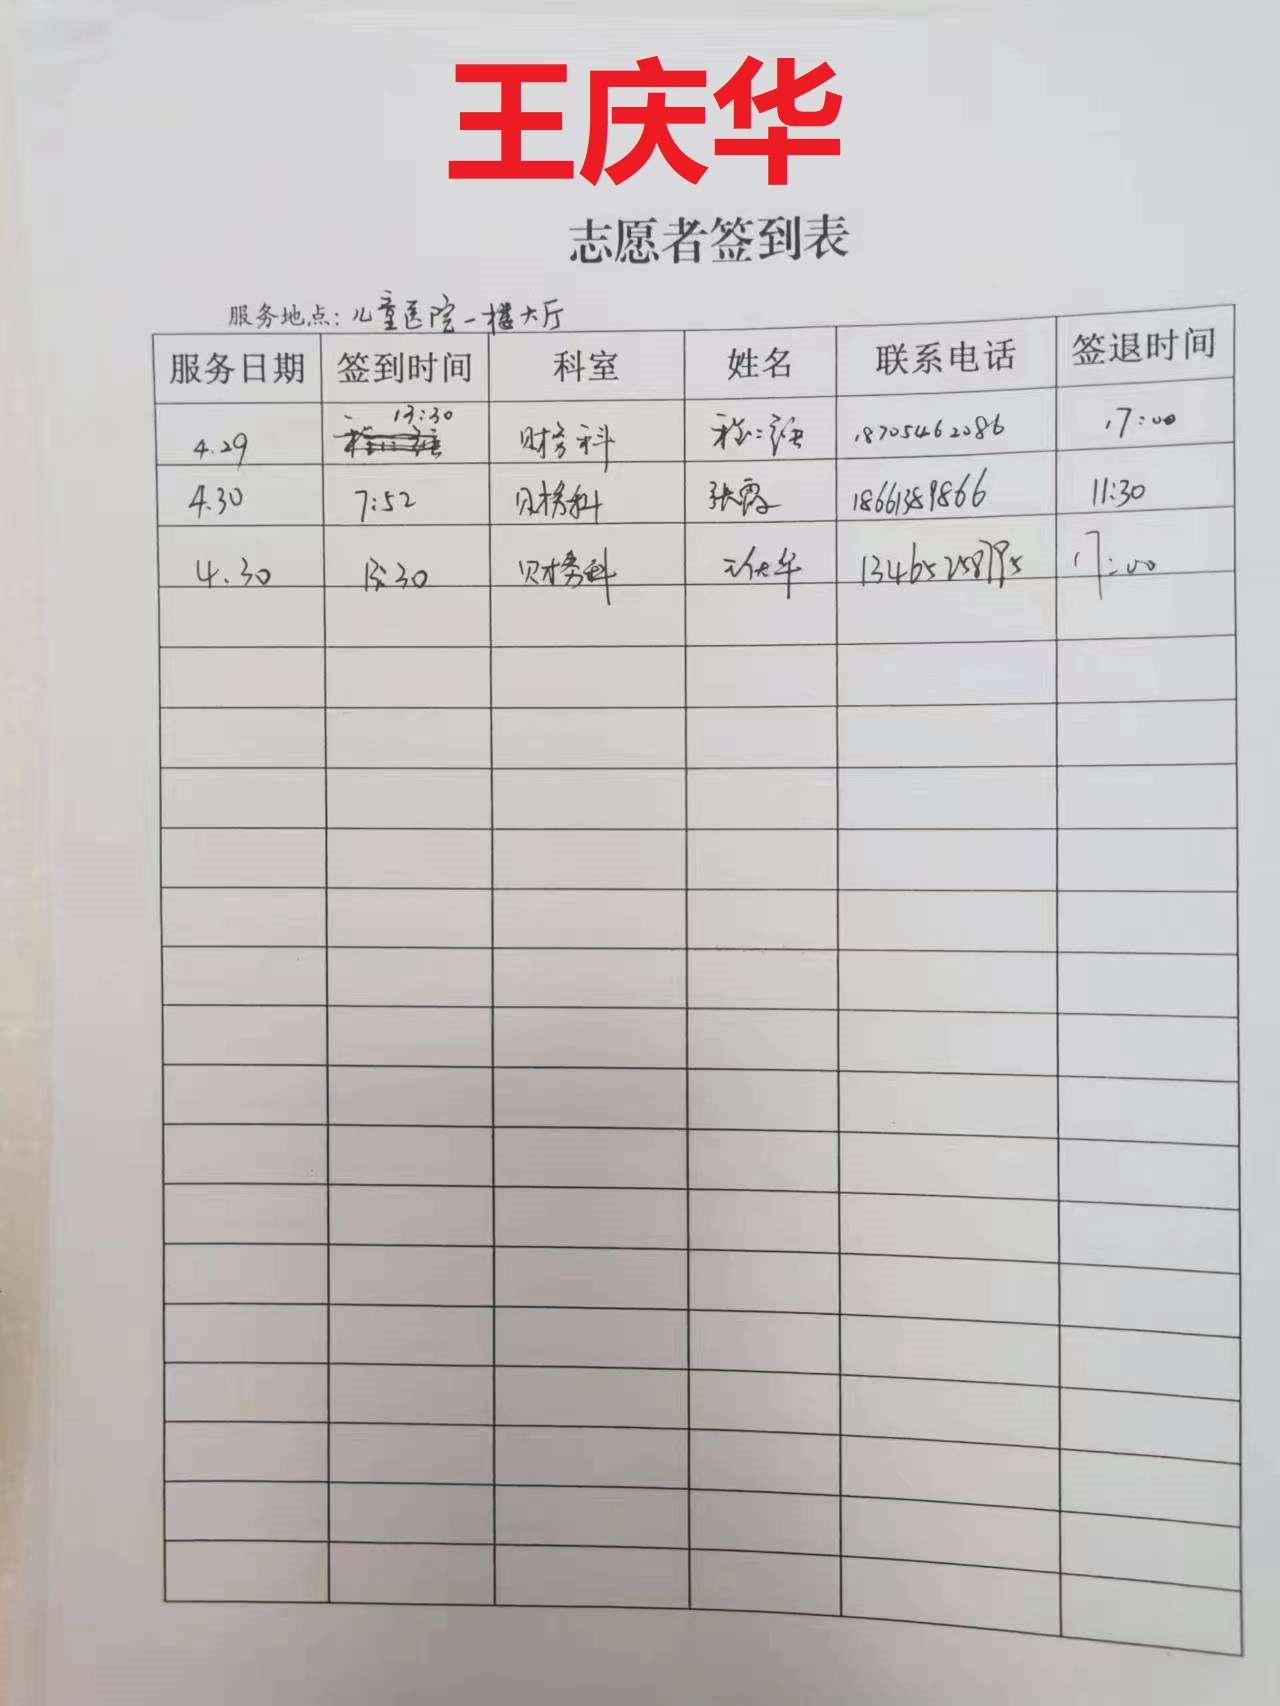 王庆华
志愿者签到表
服务地点：儿童医院一楼大厅
服务日期 签到时间 科室 姓名 联系电话 签退时间
4.29 13:30 财务科 18705462086 17:00
4.30 7:52 财务科 张霞 18661389866 11:30
4.30 13:30 财务科 17:00